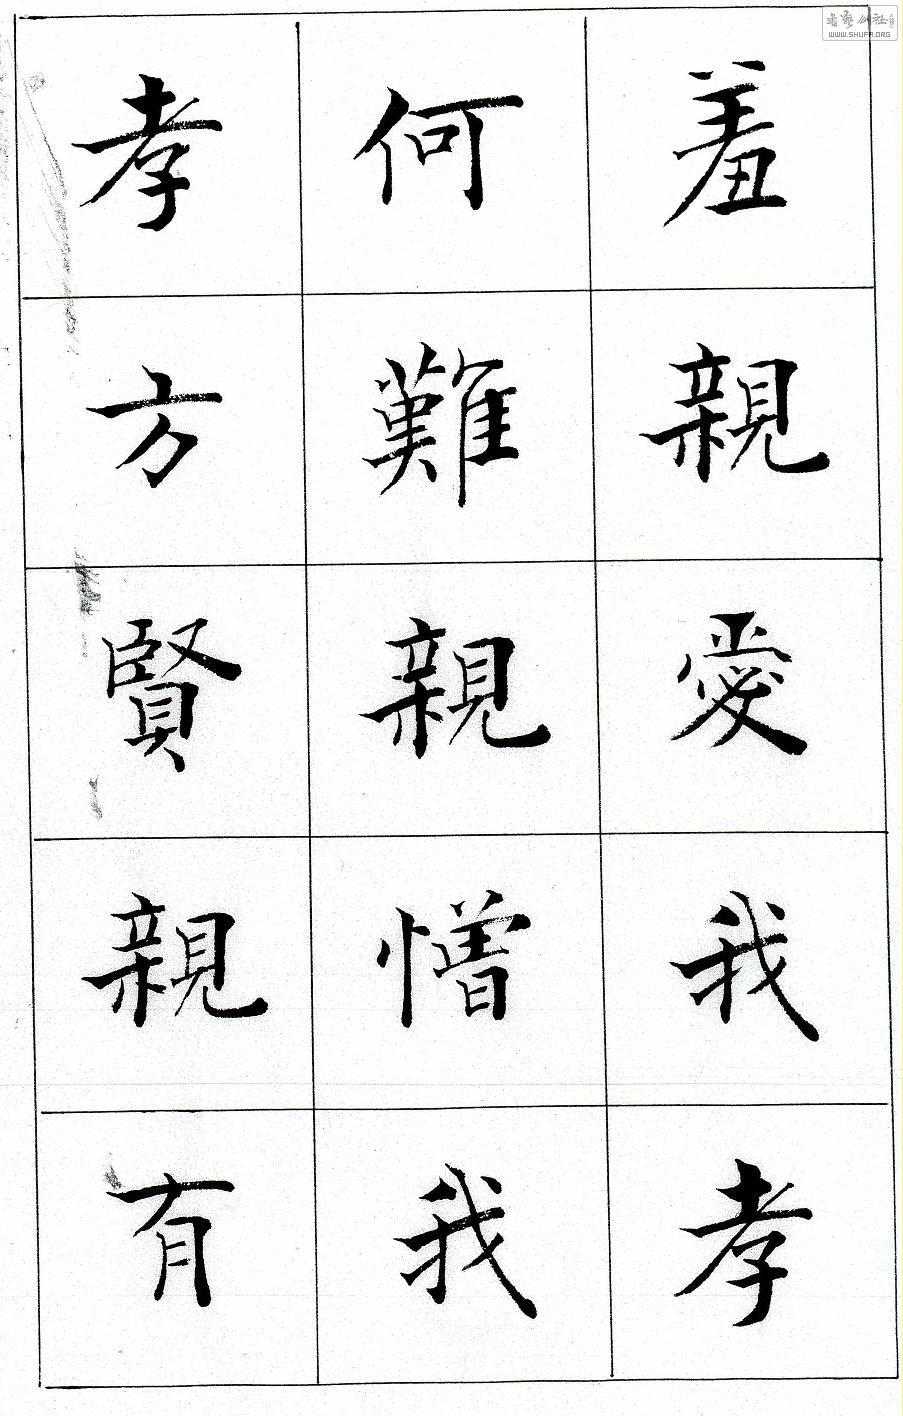 羞親愛我孝
何難親憎我
孝方賢親有
書藝公社
WWW.SHUFA.ORG